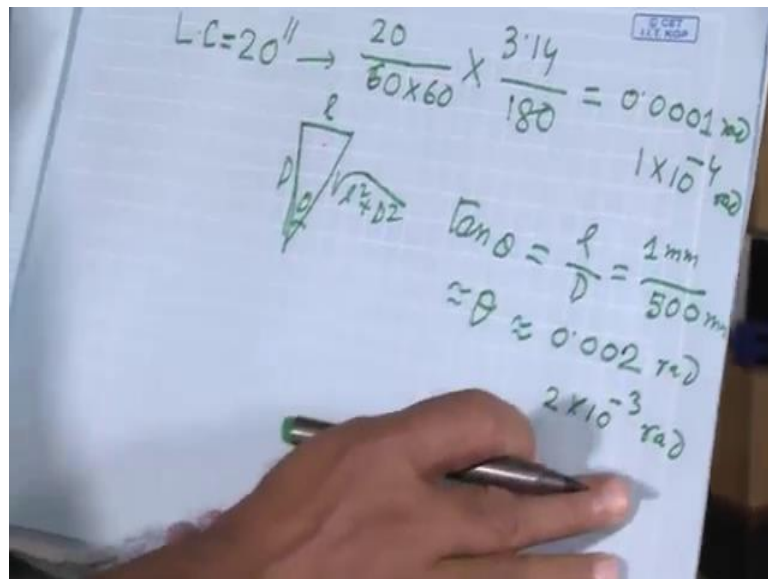 © CET
I.I.T. KGP
L.C=20" → 20/60×60 × 3.14/180 = 0.0001 rad
1×10⁻⁴ rad
l
D
θ
√l²+D²
Tanθ = l/D = 1mm/500mm
≈θ ≈ 0.002 rad
2×10⁻³ rad